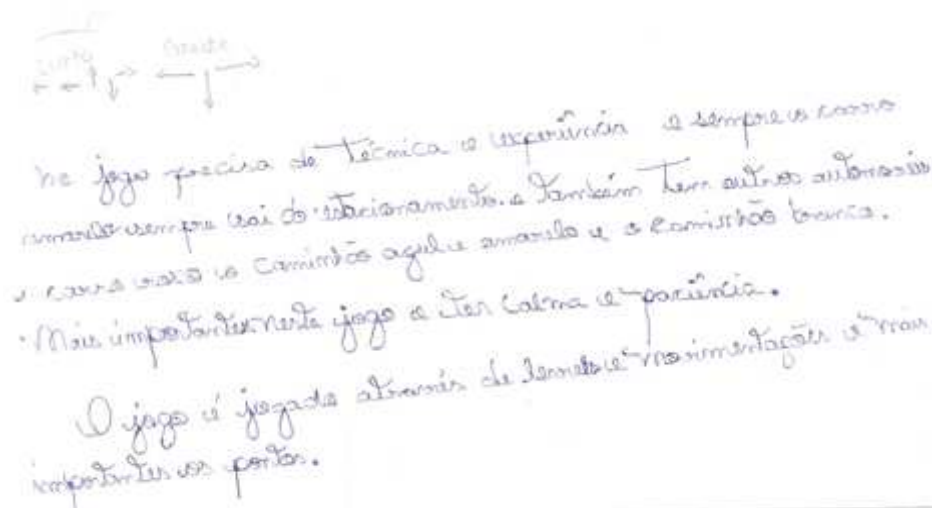 Curto Grande
no jogo precisa de Técnica e experiência e sempre o carro
amarelo sempre sai do estacionamento. e também tem outros automoveis
o carro o caminhão azul e amarelo e o camisnhão branco.
Mais importantes neste jogo e ter calma e paciência.
O jogo é jogado através de e movimentações e mais
importantes os pontos.